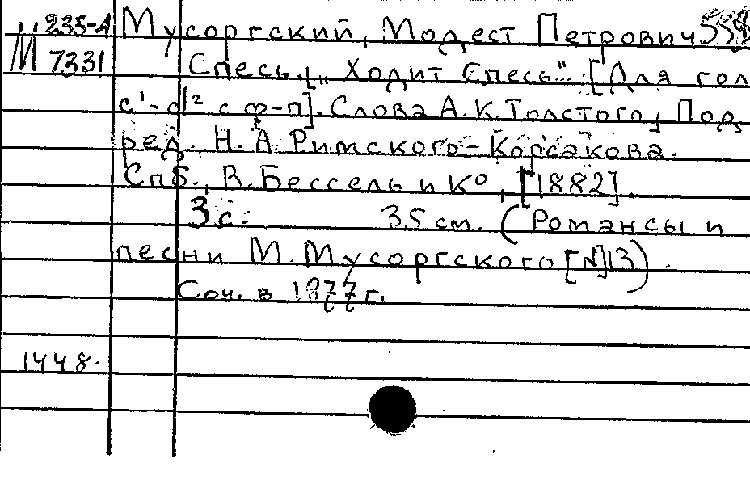 235-А Мусоргский, Модест Петрович
М 7331 Спесь. („Ходит Спесь“ [Для гол
с¹-d² с ф-п]. Слова А.К.Толстого, Под
ред. Н.А.Римского-Корсакова.
Спб., В.Бессель и К⁰, [1882].
3 с. 35 см. (Романсы и
песни М.Мусоргского [№13).
Соч. в 1877 г.
1448.